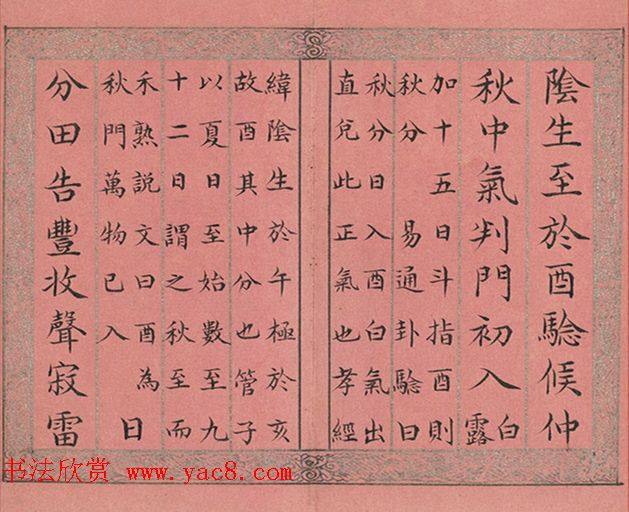 陰生至於酉驗候仲
秋中氣判門初入白露
加十五日斗指酉則
秋分 易通卦驗曰
秋分日入酉白氣出
直兌此正氣也孝經
緯陰生於午極於亥
故酉其中分也管子
以夏日至始數至九
十二日謂之秋至而
禾熟說文曰酉為
秋門萬物已入
日
分田告豐收聲寂雷
书法欣赏 www.yac8.com